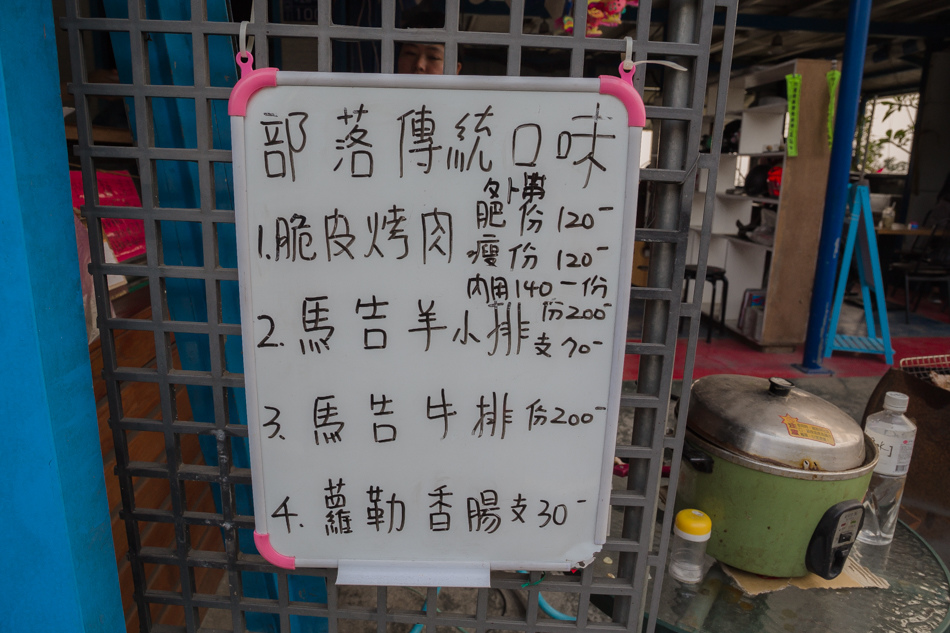 部落傳統口味
1.脆皮烤肉
外帶
肥份120-
瘦份120-
內用140一份
2.馬告羊小排 份200-
支70-
3.馬告牛排 份200-
4.蘿勒香腸 支30-